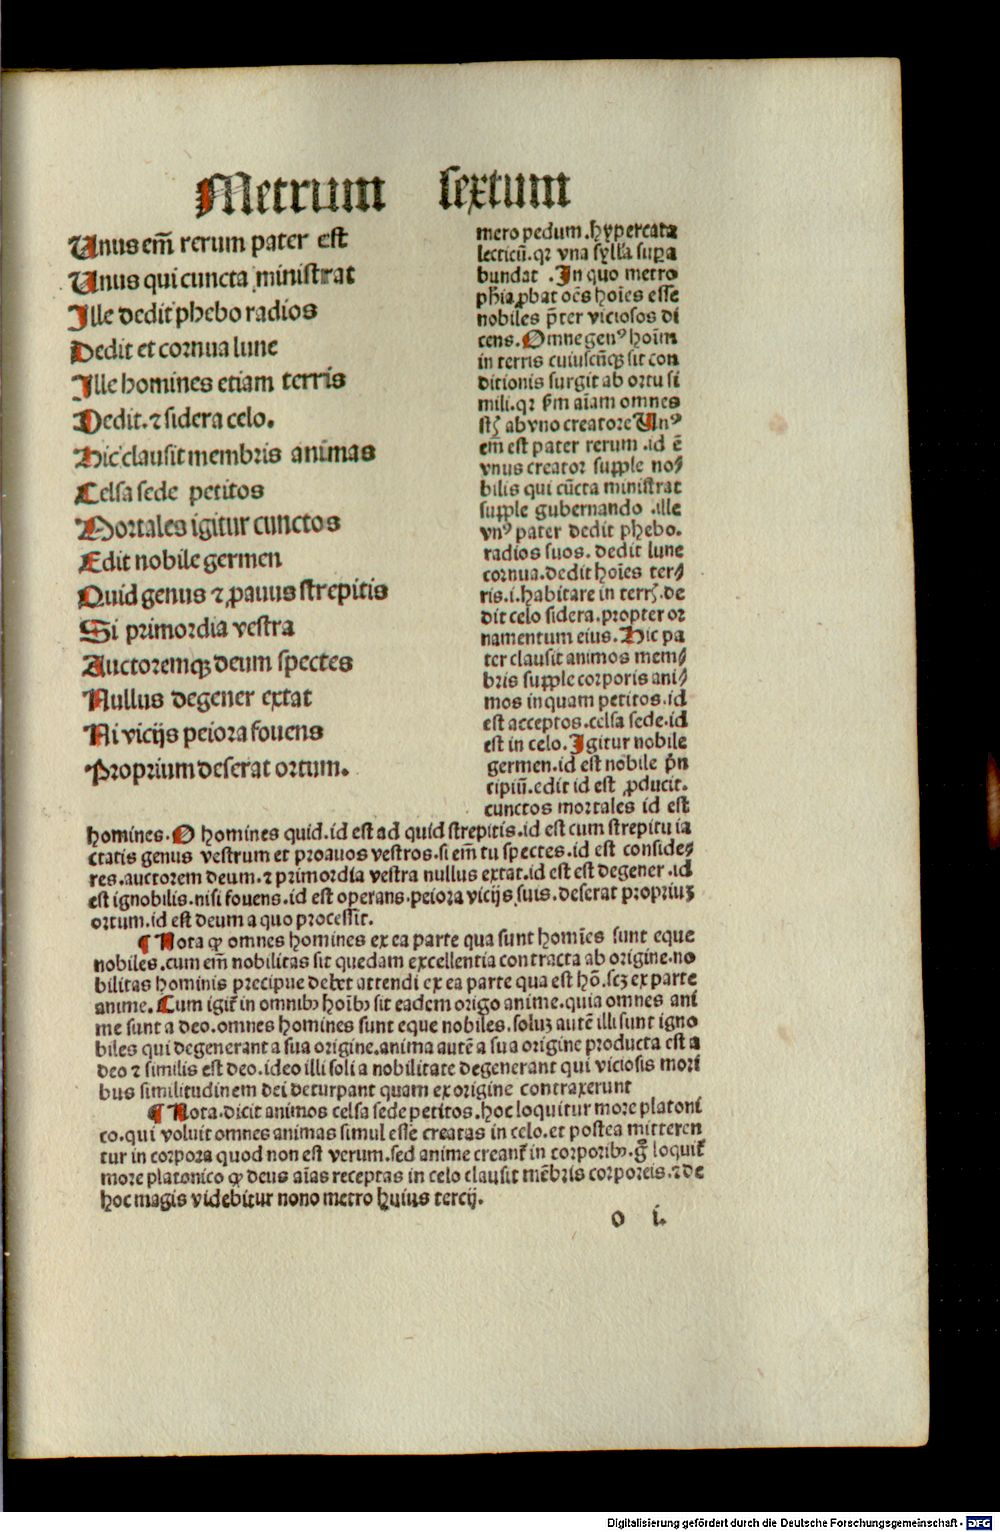 Metrum sextum
Unus em̄ rerum pater est
Unus qui cuncta ministrat
Ille dedit phebo radios
Dedit et cornua lune
Ille homines etiam terris
Dedit.⁊ sidera celo.
Hic clausit membris animas
Celsa sede petitos
Mortales igitur cunctos
Edit nobile germen
Quid genus ⁊ ꝓauus strepitis
Si primordia vestra
Auctoremqꝫ deum spectes
Nullus degener extat
Ni vicijs peiora fouens
Proprium deserat ortum.
mero pedum.hypercata
lecticū.qꝛ vna sylla suꝑa
bundat .In quo metro
ph̄ia ꝓbat oēs hoīes esse
nobiles p̄ter viciosos di
cens.Omne genꝰ hoīm
in terris cuiuscūqꝫ sit con
ditionis surgit ab ortu si
mili.qꝛ ẜm aīam omnes
st̄ ab vno creatore Unꝰ
em̄ est pater rerum .id ē
vnus creator supple no⸗
bilis qui cūcta ministrat
supple gubernando .ille
vnꝰ pater dedit phebo.
radios suos. dedit lune
cornua.dedit hoīes ter⸗
ris.i.habitare in terrꝭ.de
dit celo sidera.propter or
namentum eius.Hic pa
ter clausit animos mem⸗
bris supple corporis ani⸗
mos inquam petitos.id
est acceptos.celsa sede.id
est in celo.Igitur nobile
germen.id est nobile p̄n
cipiū.edit id est ꝓducit.
cunctos mortales id est
homines.O homines quid.id est ad quid strepitis.id est cum strepitu ia
ctatis genus vestrum et proauos vestros.si em̄ tu spectes.id est conside⸗
res.auctorem deum.⁊ primordia vestra nullus extat.id est est degener .id
est ignobilis.nisi fouens.id est operans.peiora vicijs suis.deserat propriuꝫ
ortum.id est deum a quo processit.
¶ Nota ꝙ omnes homines ex ea parte qua sunt homīes sunt eque
nobiles.cum em̄ nobilitas sit quedam excellentia contracta ab origine.no
bilitas hominis precipue debet attendi ex ea parte qua est hō.scꝫ ex parte
anime.Cum igit̄ in omnibꝰ hoībꝰ sit eadem origo anime.quia omnes ani
me sunt a deo.omnes homines sunt eque nobiles.soluꝫ autē illi sunt igno
biles qui degenerant a sua origine.anima autē a sua origine producta est a
deo ⁊ similis est deo.ideo illi soli a nobilitate degenerant qui viciosis mori
bus similitudinem dei deturpant quam ex origine contraxerunt
¶ Nota.dicit animos celsa sede petitos.hoc loquitur more platoni
co.qui voluit omnes animas simul esse creatas in celo.et postea mitteren
tur in corpora quod non est verum.sed anime creant̄ in corporibꝰ.g̊ loquit̄
more platonico ꝙ deus aīas receptas in celo clausit mēbris corporeis.⁊ de
hoc magis videbitur nono metro huius tercij.
o i.
Digitalisierung gefördert durch die Deutsche Forschungsgemeinschaft - DFG